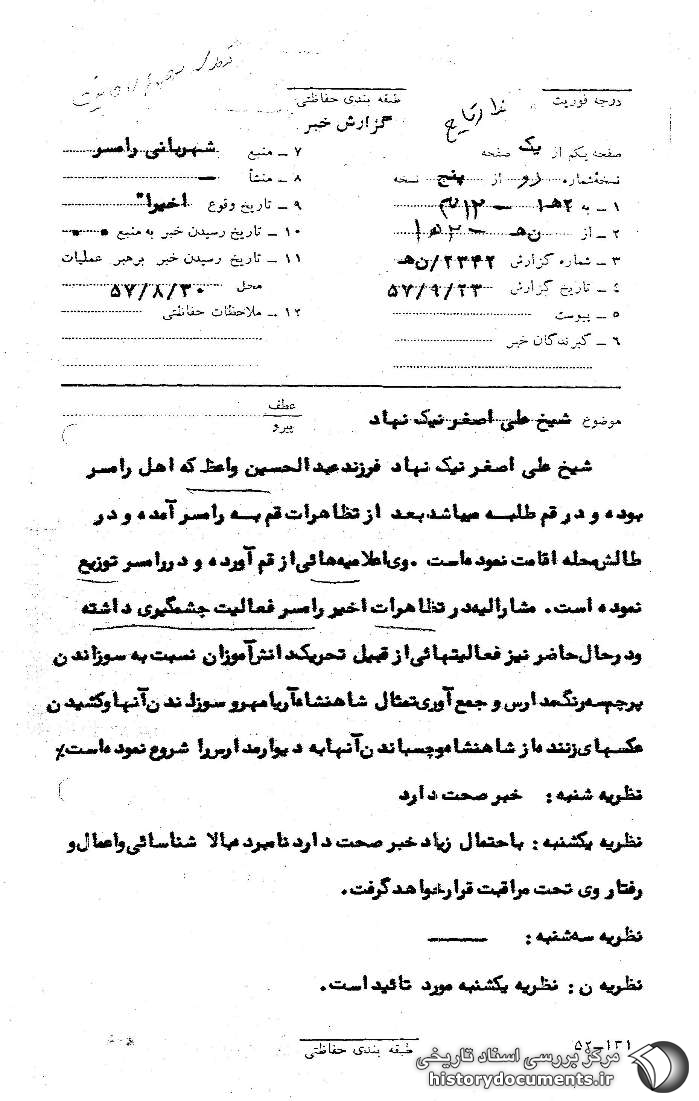 درجه فوریت
طبقه بندی حفاظتی
گزارش خبر
صفحه یکم از یک صفحه
نسخه شماره دو از پنج نسخه
۱ ـ به ۳۱۲
۲ ـ از
۳ ـ شماره گزارش ۲۳۴۲/ن‌ه‍
۴ ـ تاریخ گزارش ۵۷/۹/۲۳
۵ ـ پیوست
۶ ـ گیرندگان خبر
۷ ـ منبع شهربانی رامسر
۸ ـ منشأ —
۹ ـ تاریخ وقوع اخیرا"
۱۰ ـ تاریخ رسیدن خبر به منبع
۱۱ ـ تاریخ رسیدن خبر برهبر عملیات
محل ۵۷/۸/۳۰
۱۲ ـ ملاحظات حفاظتی
موضوع شیخ علی اصغر نیک نهاد
عطف
پیرو
شیخ علی اصغر نیک نهاد فرزند عبدالحسین واعظ که اهل رامسر
بوده و در قم طلبه میباشد بعد از تظاهرات قم به رامسر آمده و در
طالش محله اقامت نموده است . وی اعلامیه هائی از قم آورده و در رامسر توزیع
نموده است . مشارالیه در تظاهرات اخیر رامسر فعالیت چشمگیری داشته
و در حال حاضر نیز فعالیتهائی از قبیل تحریک دانش آموزان نسبت به سوزاندن
پرچم سه رنگ مدارس و جمع آوری تمثال شاهنشاه آریامهر و سوزاندن آنها و کشیدن
عکسهای زننده از شاهنشاه و چسباندن آنها به دیوار مدارس را شروع نموده است ٪
نظریه شنبه : خبر صحت دارد
نظریه یکشنبه : باحتمال زیاد خبر صحت دارد نامبرده بالا شناسائی و اعمال و
رفتار وی تحت مراقبت قرار خواهد گرفت .
نظریه سه شنبه : ———
نظریه ن : نظریه یکشنبه مورد تائید است .
۵۲-۱۳۱
طبقه بندی حفاظتی
مرکز بررسی اسناد تاریخی
historydocuments.ir